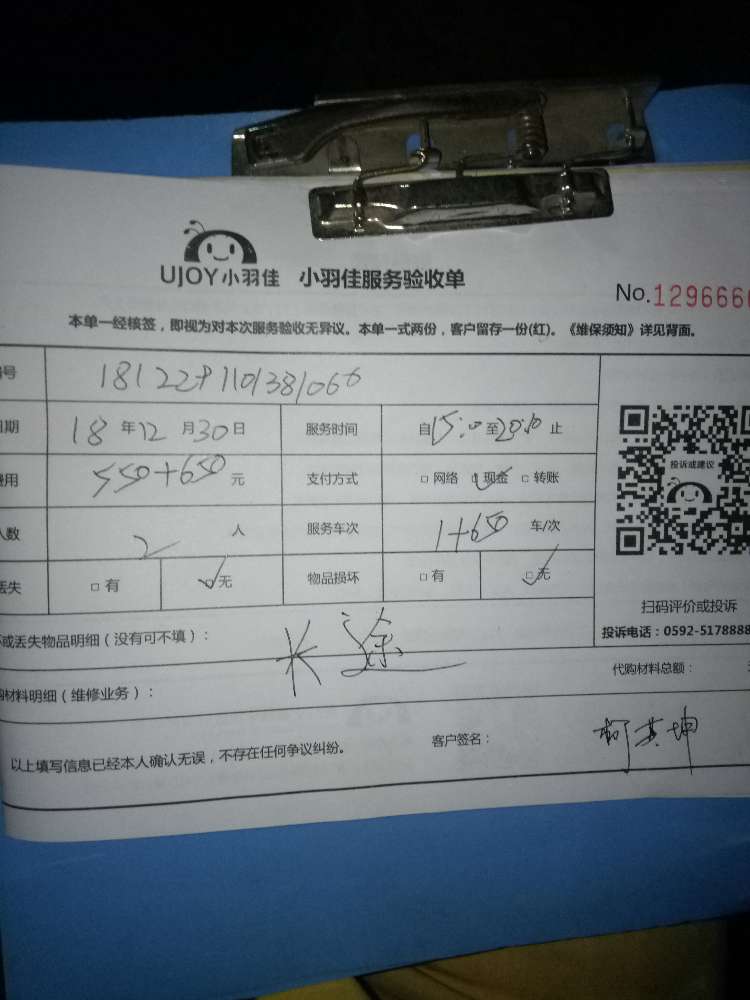 UJOY小羽佳 小羽佳服务验收单
No.1296666
本单一经核签，即视为对本次服务验收无异议。本单一式两份，客户留存一份(红)。《维保须知》详见背面。
号
期 18年12月30日 服务时间 自15:00至20:10止
用 550+650元 支付方式 □网络 □现金 □转账
人数 2人 服务车次 1+650 车/次
丢失 □有 □无 物品损坏 □有 □无
投诉或建议
扫码评价或投诉
投诉电话：0592-5178888
或丢失物品明细（没有可不填）：
长途
材料明细（维修业务）： 代购材料总额：
以上填写信息已经本人确认无误，不存在任何争议纠纷。 客户签名： 柯其坤